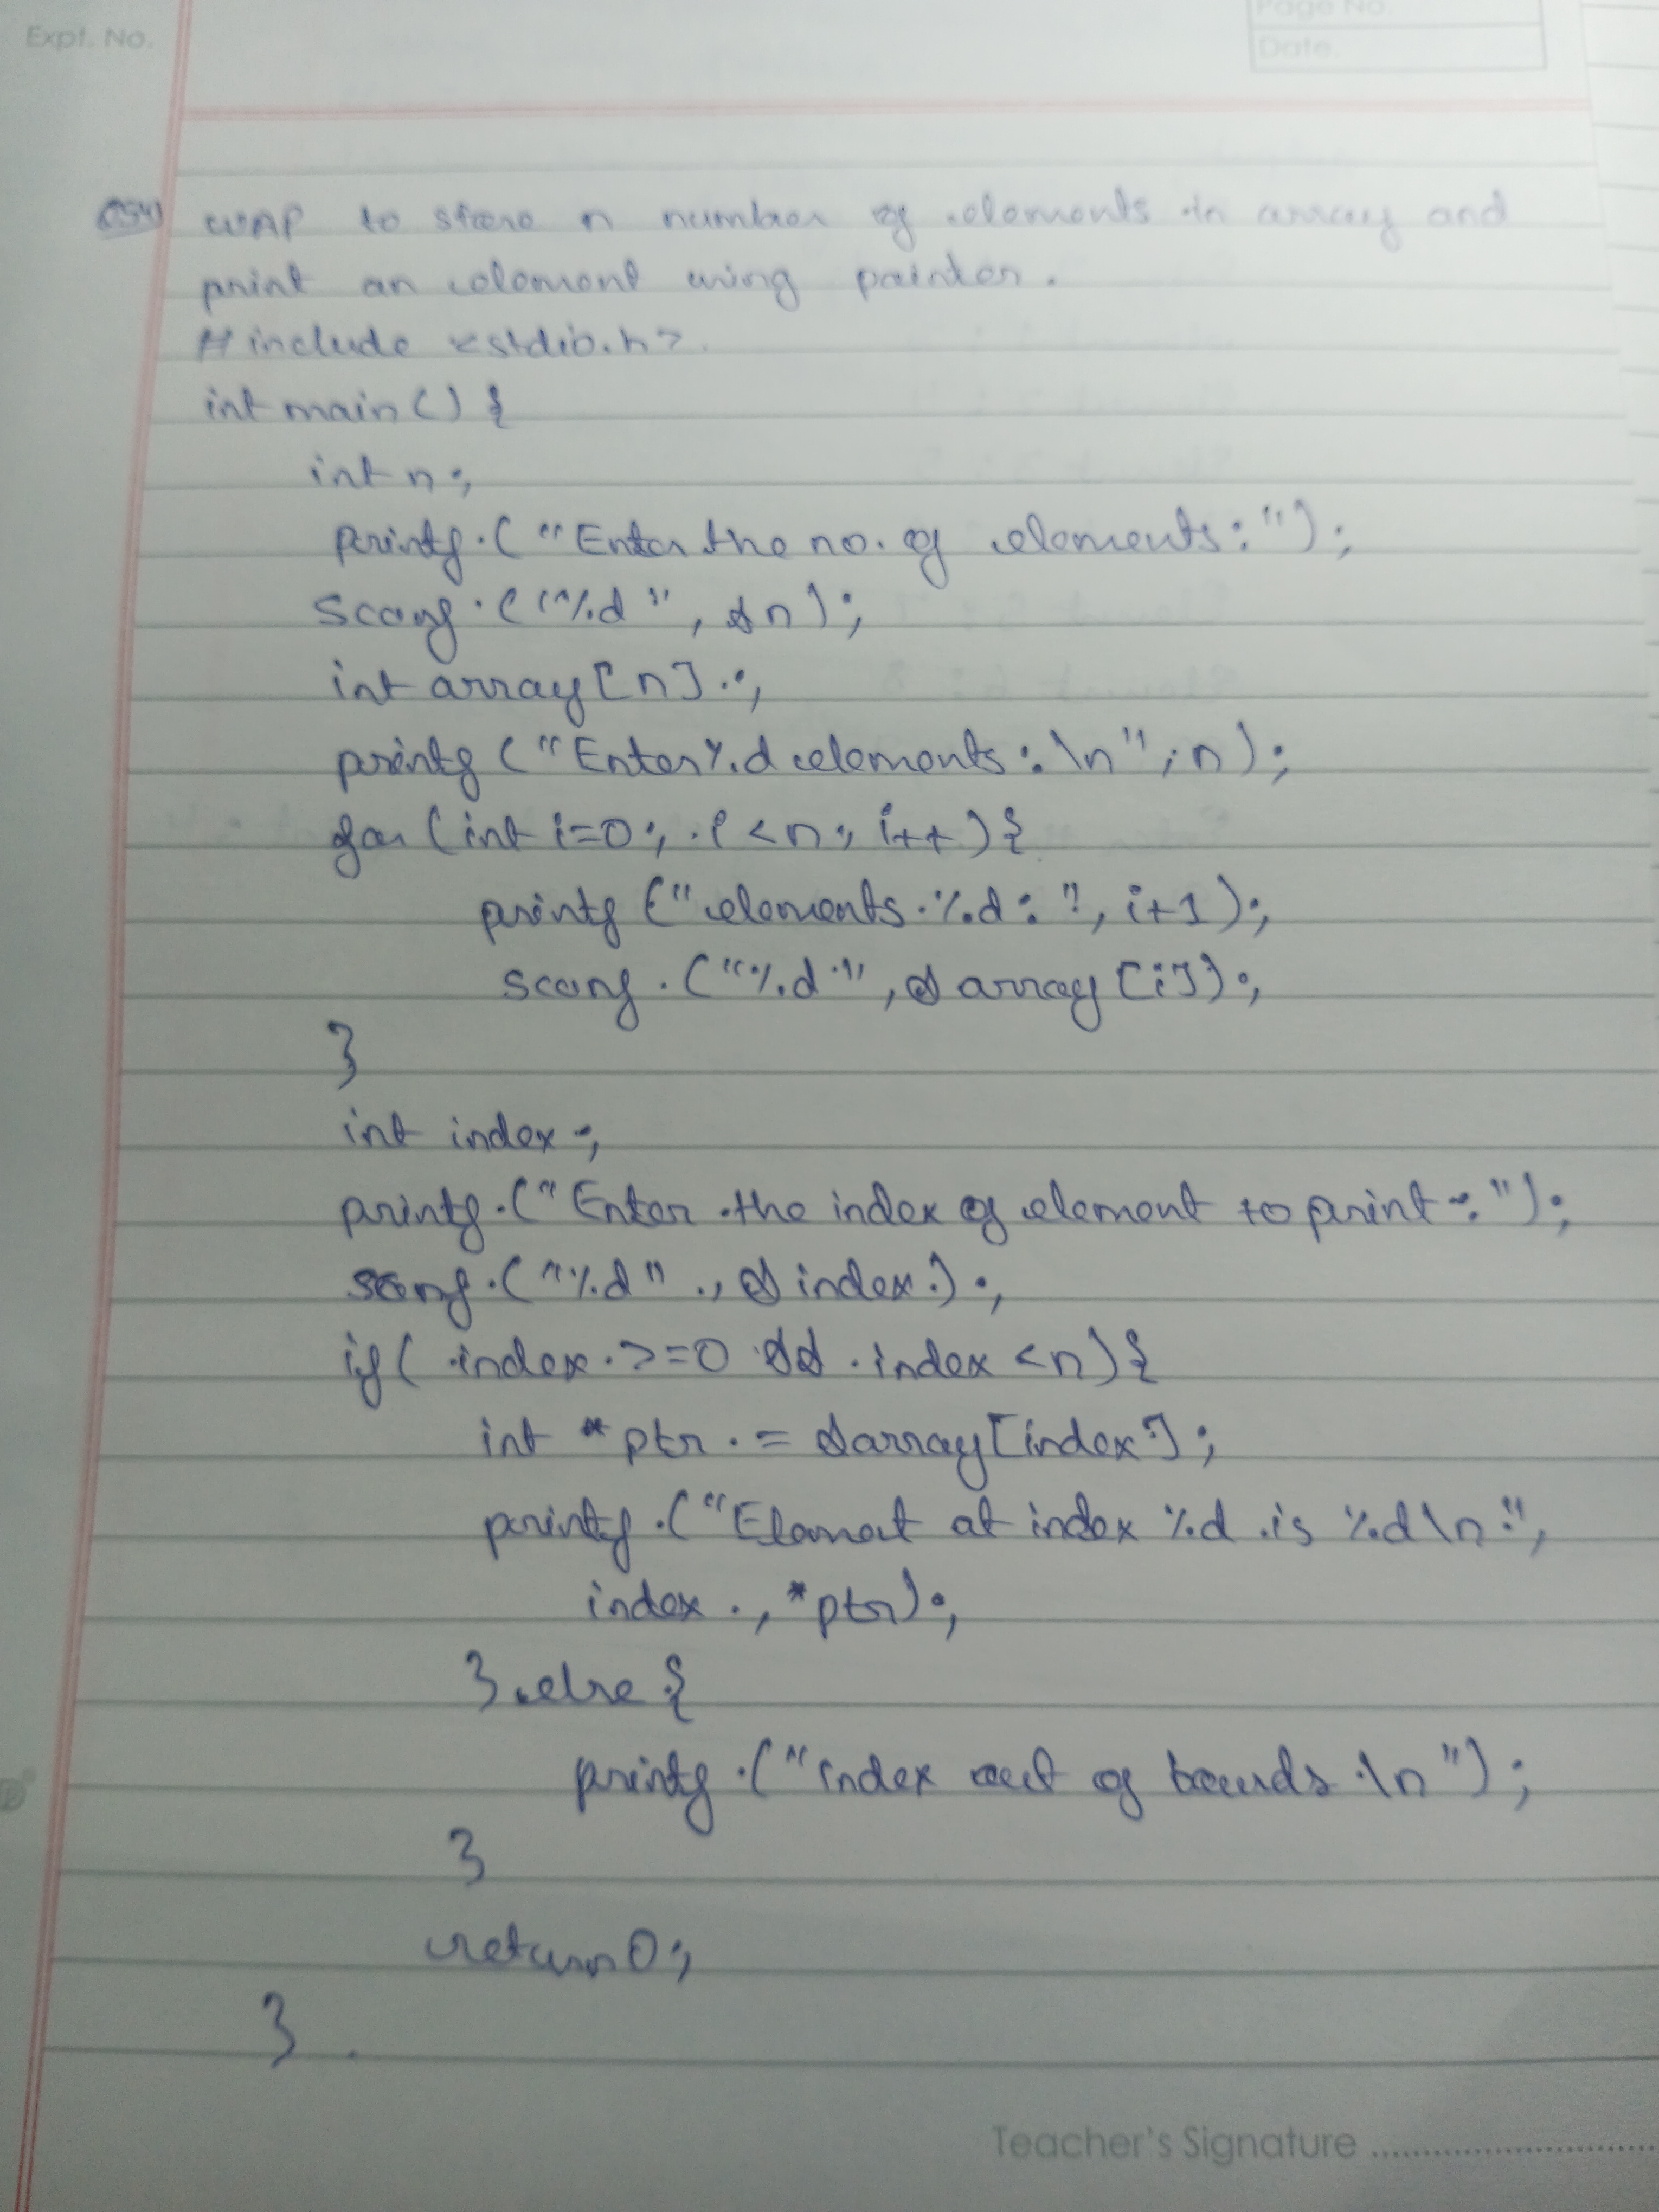 Expt. No.
Page No.
Date.
WAP to store n number of elements in array and
print an element using pointer.
#include <stdio.h>
int main() {
int n;
printf("Enter the no. of elements:");
scanf("%d", &n);
int array[n];
printf("Enter %d elements:\n", n);
for (int i=0; i<n; i++) {
printf("elements %d:", i+1);
scanf("%d", &array[i]);
}
int index;
printf("Enter the index of element to print:");
scanf("%d", &index);
if( index >=0 && index <n) {
int *ptr = &array[index];
printf("Element at index %d is %d\n",
index, *ptr);
} else {
printf("index out of bounds.\n");
}
return 0;
}
Teacher's Signature